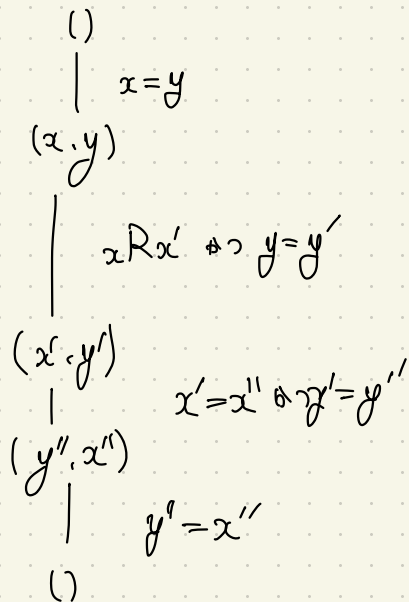 ()
x = y
(x, y)
xRx' かつ y = y'
(x', y')
x' = x'' かつ y' = y''
(y'', x'')
y'' = x''
()